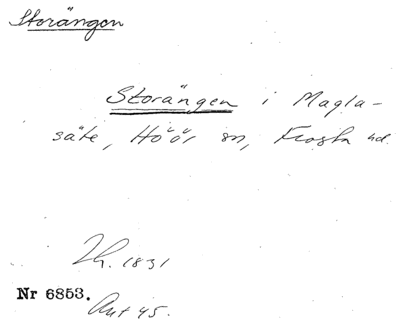 Storängen
Storängen i Magla-
säte, Höör sn, Frosta hd.
Lh. 1831
Nr 6853.
Ant 45.